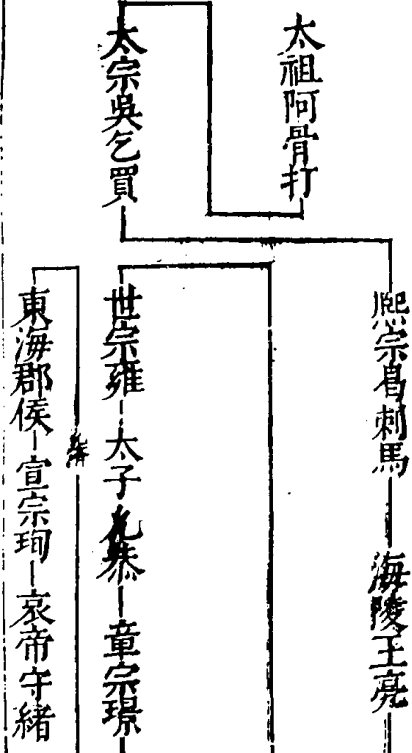 太祖阿骨打
太宗吳乞買
熈宗曷刺馬
海陵王亮
世宗雍
太子允恭
章宗璟
東海郡侯
宣宗珣
哀帝守緒